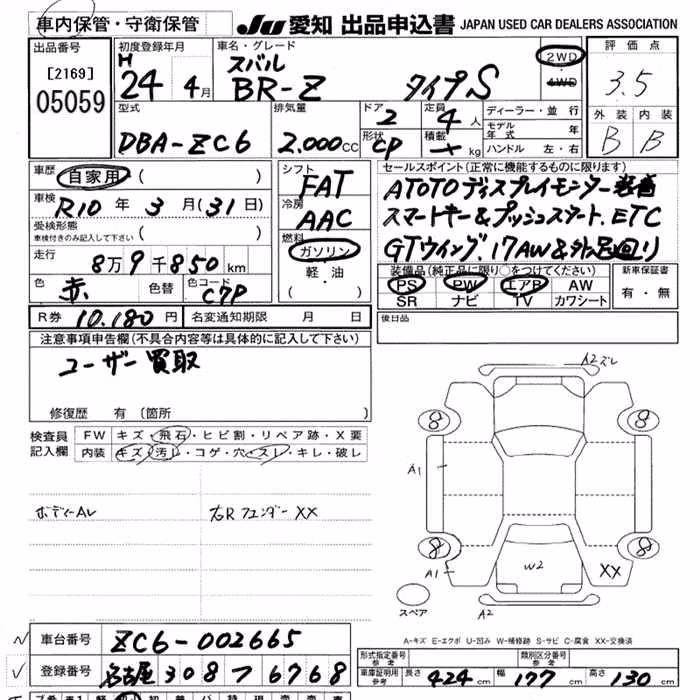 車内保管・守衛保管 JU 愛知 出品申込書 JAPAN USED CAR DEALERS ASSOCIATION
出品番号 初度登録年月 車名・グレード 評価点
[2169] H スバル 2WD
05059 24 4月 BR-Z タイプS 4WD 3.5
型式 排気量 ドア 定員 ディーラー・並行 外装 内装
2 4人 モデル年式 年 B B
DBA-ZC6 2.000cc 形状 CP 積載 kg ハンドル 左・右
車歴 自家用 ( ) シフト セールスポイント(正常に機能するものに限ります)
車検 R10年 3月(31日) FAT ATOTOディスプレイモニター装着
受検形態 車検付きのみ記入して下さい ( ) 冷房 AAC スマートキー&プッシュスタート.ETC
走行 燃料 ガソリン GTウイング.17AW&外足回り
8万9千850km 軽・油 装備品(純正品に限り○をつけてください) 新車保証書
色 赤 色替 色コード C7P ( ) PS PW エアB AW 有・無
SR ナビ TV カワシート
R券 10.180円 名変通知期限 月 日 後日品
注意事項申告欄(不具合内容等は具体的に記入して下さい)
ユーザー買取
修復歴 有(箇所 )
検査員記入欄 FW キズ・飛石・ヒビ割・リペア跡・X要
内装 キズ・汚レ・コゲ・穴・スレ・キレ・破レ
ボディーAU 右Rフェンダー XX
A2ズレ
8 8
A1
8 8
A1 W2 XX
スペア A2
A-キズ E-エクボ U-凹み W-補修跡 S-サビ C-腐食 XX-交換済
車台番号 ZC6-002665
形式指定番号 参考 類別区分番号 参考
登録番号 名古屋 308 フ 6768
車庫証明用 参考 長さ 424cm 幅 177cm 高さ 130cm